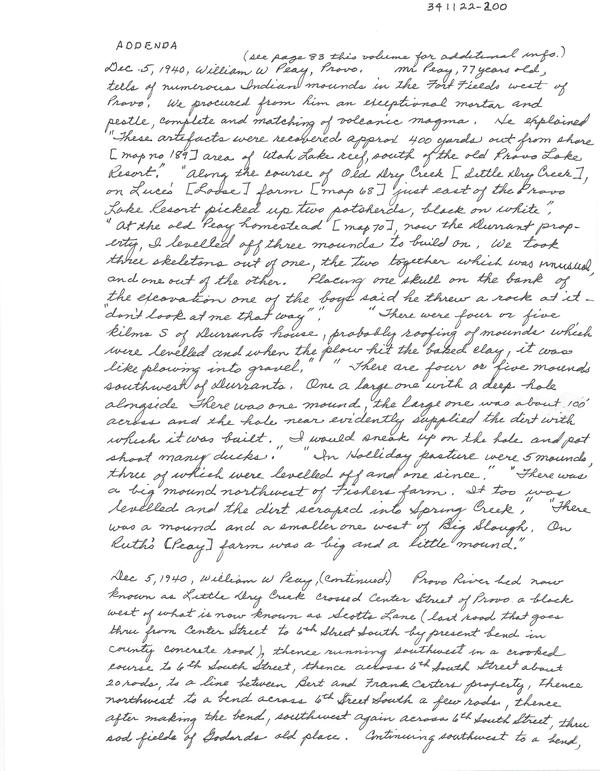 341122-200
ADDENDA
(see page 83 this volume for additional info.)
Dec. 5, 1940, William W Peay, Provo. Mr Peay, 77 years old,
tells of numerous Indian mounds in the Fort Fields west of
Provo. We procured from him an exceptional mortar and
pestle, complete and matching of volcanic magma. He explained
"These artefacts were recovered approx 400 yards out from shore
[map no 189] area of Utah Lake reef, south of the old Provo Lake
Resort." "Along the course of Old Dry Creek [Little Dry Creek],
on Luce's [Loose] farm [map 68] just east of the Provo
Lake Resort picked up two potsherds, black on white".
"At the old Peay homestead [map 70], now the Durrant prop-
erty, I levelled off three mounds to build on. We took
three skeletons out of one, the two together which was unusual,
and one out of the other. Placing one skull on the bank of
the excavation one of the boys said he threw a rock at it -
"don't look at me that way"." "There were four or five
kilns S of Durrants house, probably roofing of mounds which
were levelled and when the plow hit the baked clay, it was
like plowing into gravel." "There are four or five mounds
southwest of Durrants. One a large one with a deep hole
alongside There was one mound, the large one was about 100'
across and the hole near evidently supplied the dirt with
which it was built. I would sneak up on the hole and pot
shoot many ducks." "In Holliday pasture were 5 mounds,
three of which were levelled off and one since." "There was
a big mound northwest of Fishers farm. It too was
levelled and the dirt scraped into Spring Creek," "There
was a mound and a smaller one west of Big Slough. On
Ruth's [Peay] farm was a big and a little mound."
Dec 5, 1940, William W Peay, (continued.) Provo River bed now
known as Little Dry Creek crossed Center Street of Provo a block
west of what is now known as Scotts Lane (last road that goes
thru from Center Street to 6th Street South by present bend in
county concrete road), thence running southwest in a crooked
course to 6th South Street, thence across 6th South Street about
20 rods, to a line between Bert and Frank Carters property, thence
northwest to a bend across 6th Street South a few rods, thence
after making the bend, southwest again across 6th South Street, thru
sod fields of Godards old place. Continuing southwest to a bend,